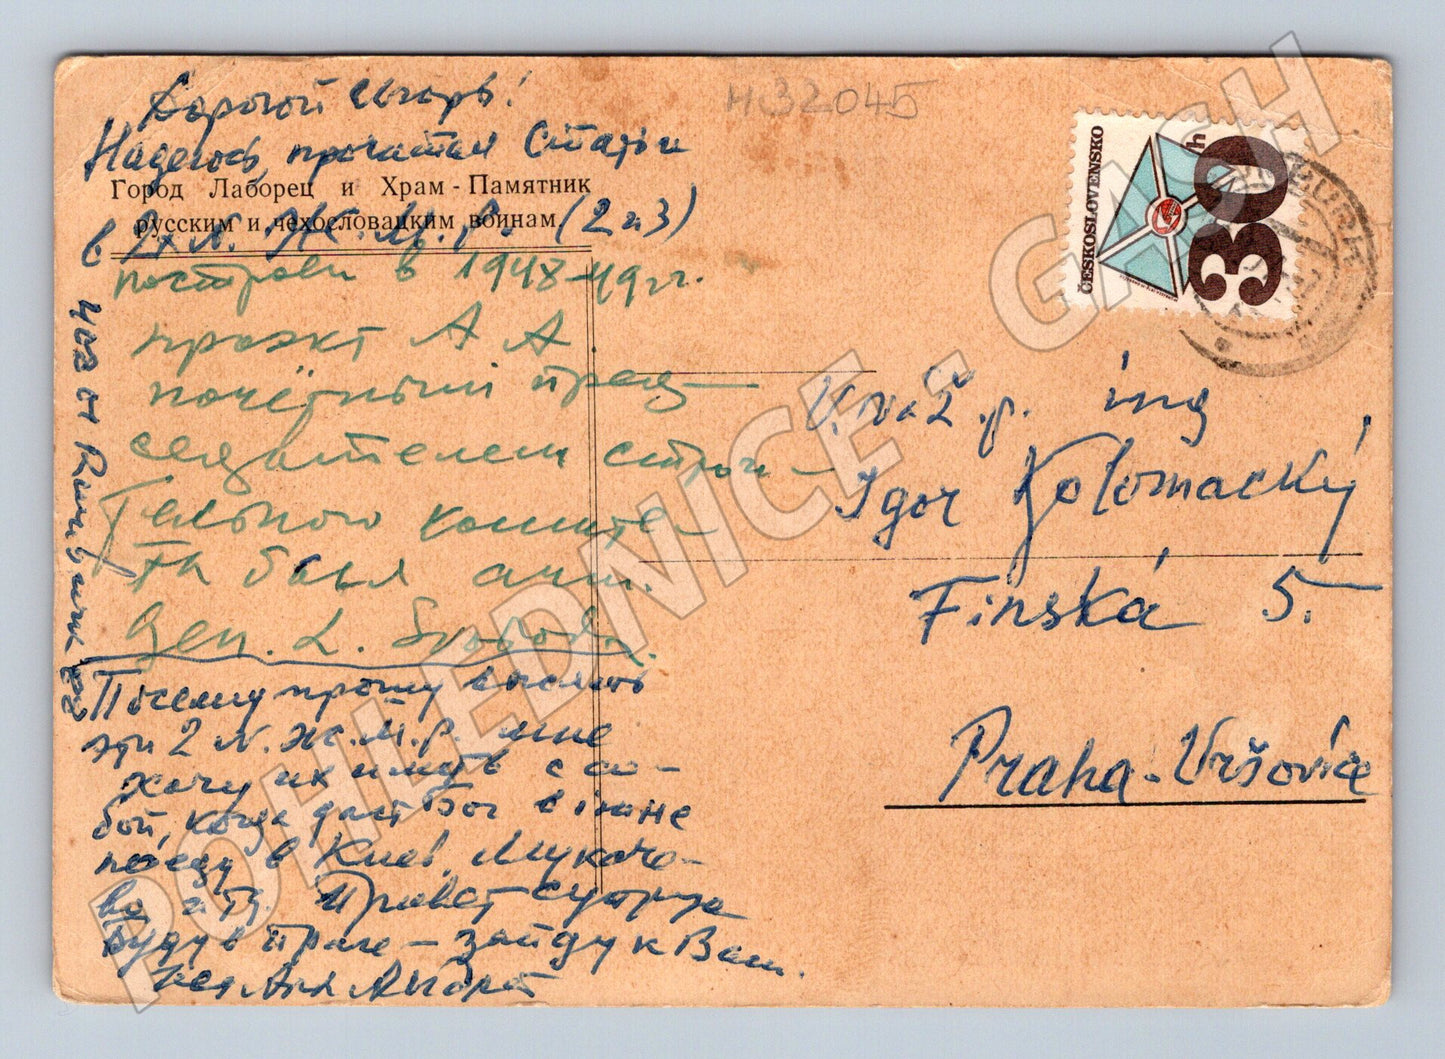 H32045
Дорогой Игорь!
Надеюсь, прочитал статьи
Город Лаборец и Храм - Памятник
русским и чехословацким воинам.
в 2х N. Ж. М. Р. (2 и 3)
построен в 1948-49 гг.
проэкт А А.
почётный пред-
седателем строи-
тельного комите-
та был
ген. L. Svoboda.
Посему прошу выслать
эти 2 N. Ж. М. Р. мне
хочу их иметь с со-
бой, когда даст Бог в июне
поеду в Киев, Мукаче-
во и тд. Привет супруге
Буду в Праге - зайду к Вам.
ČESKOSLOVENSKO
30
h
V. váž. p. ing
Igor Kolomacký
Finská 5.
Praha-Vršovice
POHLEDNICE - GASH